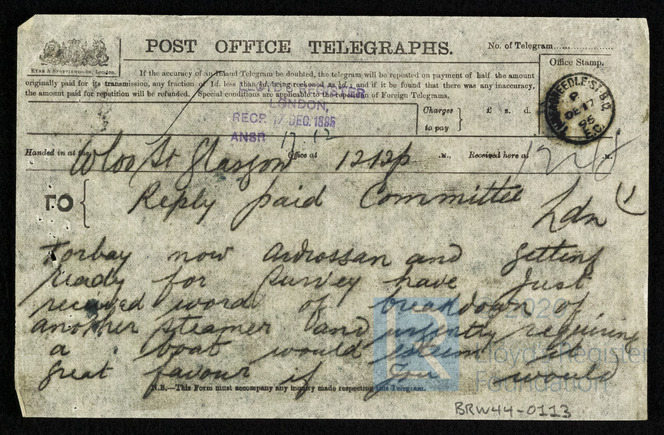 POST OFFICE TELEGRAPHS.
No. of Telegram
Office Stamp.
EYRE & SPOTTISWOODE, London.
If the accuracy of an Inland Telegram be doubted, the telegram will be repeated on payment of half the amount
originally paid for its transmission, any fraction of 1d. less than ½d. being reckoned as ½d.; and if it be found that there was any inaccuracy,
the amount paid for repetition will be refunded. Special conditions are applicable to the repetition of Foreign Telegrams.
LONDON,
RECP. 17 DEC. 1885
ANSR 17.12
Charges to pay } £ s. d.
THREADNEEDLE ST B.O.
DE 17
E.C.
Handed in at the Wloo St Glasgow Office at 12.12p M., Received here at M.
TO { Reply paid Committee
Ldn
Torbay now Ardrossan and getting
ready for survey have just
received word of breakdown of
another steamer and urgently requiring
a boat would esteem it
great favour if you would
N.B.—This Form must accompany any inquiry made respecting this Telegram.
Lloyd's Register
Foundation
BRW44-0113